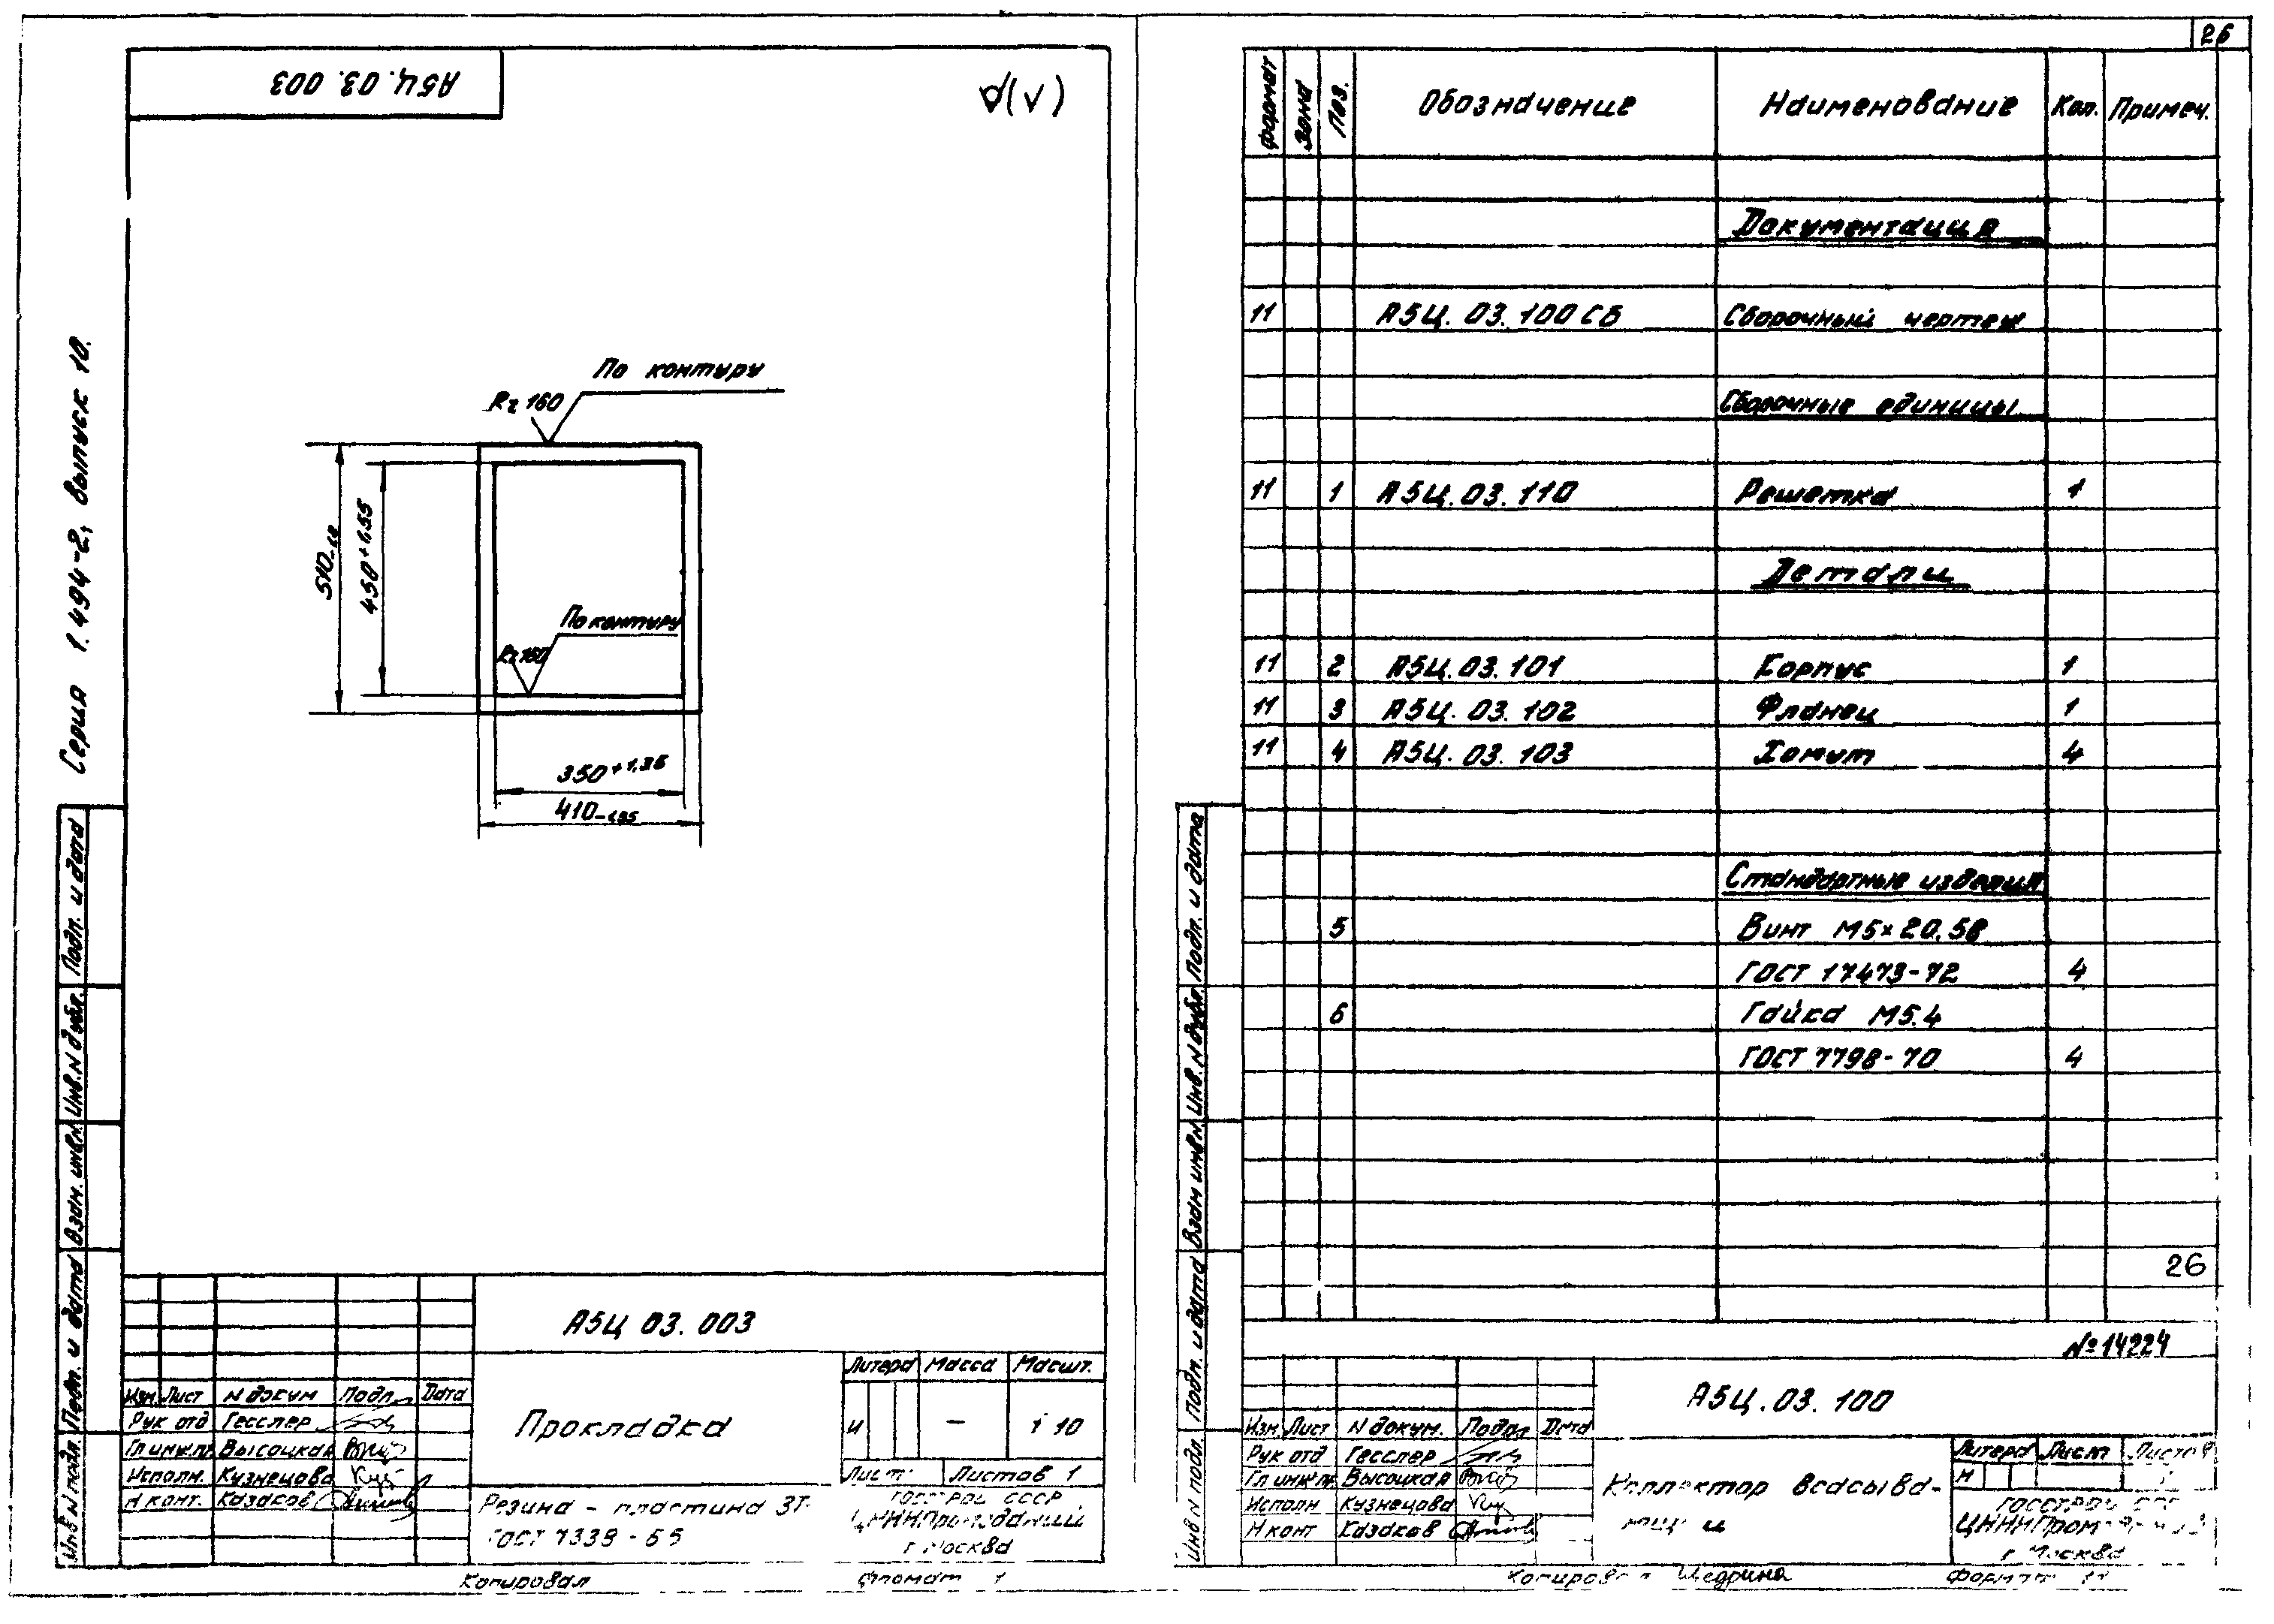 А5Ц. 03. 003
(√)
Серия 1.494-2, выпуск 10.
По контуру
Rz 160
510
450
По контуру
Rz 160
350
410
Подп. и дата
Инв. N дубл.
Взам. инв N
Подп. и дата
Инв N подл.
А5Ц 03. 003
Изм. Лист N докум Подп. Дата
Рук отд Гесслер
Гл инж.пр. Высоцкая
Исполн. Кузнецова
Н конт. Казаков
Прокладка
Литера Масса Масшт.
И — 1 10
Лист Листов 1
Резина - пластина
ГОСТ 7338 - 65
Госстрой СССР
ЦНИИПромзданий
г Москва
Копировал Формат
26
Формат Зона Поз. Обозначение Наименование Кол. Примеч.
Документация
11 А5Ц. 03. 100 СБ Сборочный чертеж
Сборочные единицы
11 1 А5Ц. 03. 110 Решетка 1
Детали
11 2 А5Ц. 03. 101 Корпус 1
11 3 А5Ц. 03. 102 Фланец 1
11 4 А5Ц. 03. 103 Хомут 4
Стандартные изделия
5 Винт М5×20.58
ГОСТ 17473-72 4
6 Гайка М5.4
ГОСТ 7798-70 4
26
№14224
Подп. и дата
Инв. N дубл.
Взам инв N
Подп. и дата
Инв N подл.
А5Ц. 03. 100
Изм. Лист N докум. Подп. Дата
Рук отд Гесслер
Гл инж.пр. Высоцкая
Исполн Кузнецова
Н конт Казаков
Коллектор всасыва-
Литера Лист Листов
И
Госстрой
г Москва
Щедрина
Формат 11